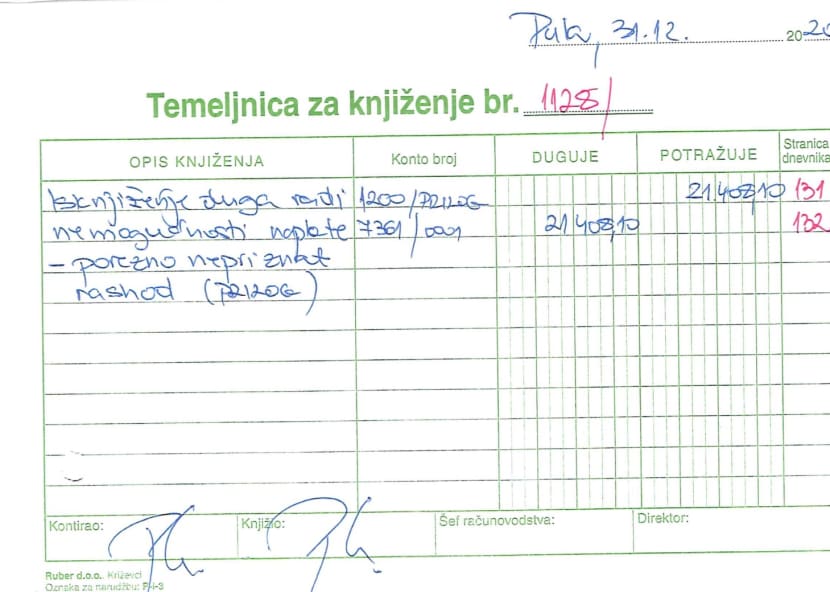 Pula, 31.12. 2020
Temeljnica za knjiženje br. 1128/
OPIS KNJIŽENJA Konto broj DUGUJE POTRAŽUJE Stranica dnevnika
Isknjiženje duga radi 1200/PRILOG 21.408,10 131
nemogućnosti naplate 7361/0001 21.408,10 132
- porezno nepriznat
rashod (PRILOG)
Kontirao: Knjižio: Šef računovodstva: Direktor:
Ruber d.o.o., Križevci
Oznaka za narudžbu: P-I-3